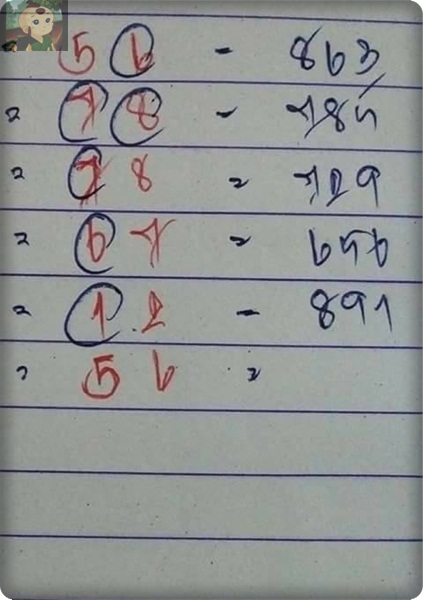 = 5 6 - 863
= 7 8 - 785
= 7 8 = 729
= 6 7 = 656
= 1.2 - 891
= 5 6 =